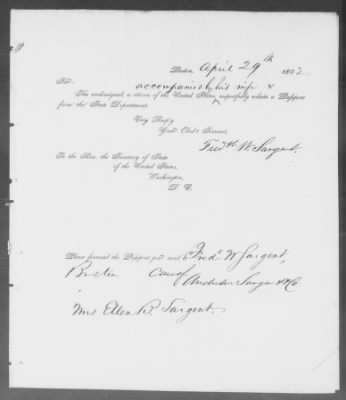 Boston, April 29th 1852
Sir:
accompanied by his wife &
The undersigned, a citizen of the United States, respectfully solicits a Passport
from the State Department.
Very Resp'y
Your Obed't Servant,
Fredk W. Sargent.
To the Hon. the Secretary of State
of the United States,
Washington,
D. C.
Please forward the Passport per mail to Fredk W Sargent,
Boston Care of
Sargent & Co
Mrs Ellen B. Sargent.